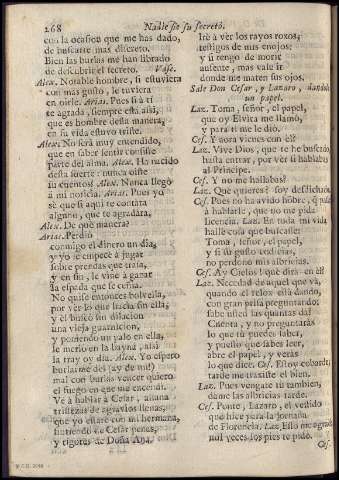 268
Nadie fie su secreto.
con la ocasion que me has dado,
de buscarte mas discreto.
Bien las burlas me han librado
de descubrir el secreto. Vase.
Alex. Notable hombre, si estuviera
con mas gusto, le tuviera
en oirle. Arias. Pues si à ti
te agrada, siempre està assi,
que es hombre desta manera,
en su vida estuvo triste.
Alex. No serà muy entendido,
que en saber sentir consiste
parte del alma. Alex. Ha nacido
desta suerte: nunca oiste
su cuentos? Alex. Nunca llegò
à mi noticia. Arias. Pues yo
sè que si aqui te contàra
alguno, que te agradàra,
Alex. De què manera?
Arias. Perdiò
conmigo el dinero un dia,
y yo le empecè à jugar
sobre prendas que traia,
y en fin, le vine à ganar
la espada que se ceñia.
No quise entonces bolverla,
por ver lo que hacia sin ella;
y èl buscò sin dilacion
una vieja guarnicion,
y poniendo un palo en ella,
le metiò en la bayna, assi
la tray oy dia. Alex. Yo espero
burlarme del (ay de mi!)
mal con burlas vencer quiero
el fuego en que me encendì.
Ve à hablar à Cesar, allana
tristezas de agravios llenas,
que yo estarè con mi hermana,
huyendo de Cesar penas,
y rigores de Doña Ana.
Irè à ver los rayos roxos,
testigos de mis enojos;
y si tengo de morir
ausente, mas vale ir
donde me maten sus ojos.
Sale Don Cesar, y Lazaro, dandole
un papel.
Laz. Toma, señor, el papel,
que oy Elvira me llamò,
y para ti me le diò.
Ces. Y aora vienes con èl?
Laz. Vive Dios, que te he buscado
hasta entrar, por ver si hablabas
al Principe.
Ces. Y no me hallabas?
Laz. Què quieres? soy desdichado.
Ces. Pues no ha avido hombre, que
à hablarle, que no me pida
licencia. Laz. En toda mi vida
hallè cosa que buscasse:
Toma, señor, el papel,
y si es gusto con èl das,
no perdonè mis albricias.
Ces. Ay Cielos! què dirà en èl?
Laz. Necedad de aquel que và,
quando el relox està dando,
con gran prisa preguntando:
sabe usted las quantas dà?
Cuenta, y no preguntaràs
lo que tù puedes saber,
y puesto que sabes leer,
abre el papel, y veràs
lo que dice. Ces. Estoy cobarde;
tarde me traxiste el bien.
Laz. Pues vengate tù tambien,
dame las albricias tarde.
Ces. Ponte, Lazaro, el vestido
que hice para la jornada
de Florencia. Laz. Esso me agrada
mil veces los pies te pido.
Ces.